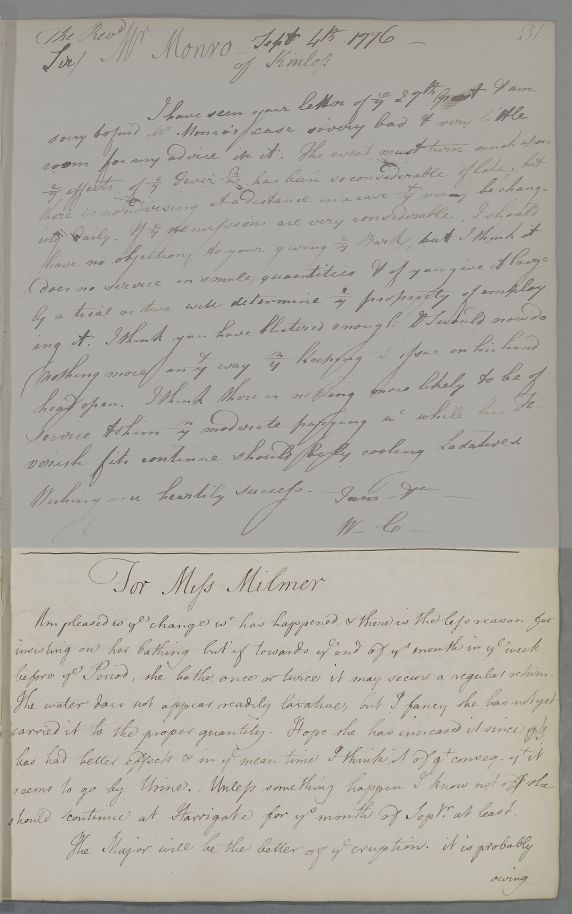 The Revd Mr Monro Sept 4th 1776 – 31
Sir/ of Kinloss
I have seen your letter of ye 29th I am
sorry to find Mr Monro's case so very bad & very little
room for my advice in it. The event must turn much upon
ye effects of ye Fever has been so considerable of late, but
there is no advising at a distance in a case yt may be chang-
ing daily. If ye remissions are very considerable, I should
have no objections to your giving ye Bark, but I think it
does no service in small quantities & if you give it large
ly a trial or two will determine ye propriety of employ-
ing it. I think you have blistered enough & I would now do
nothing more in yt way yn keeping issue on his hind
head open. I think there is nothing more likely to be of
service to him yn moderate purging wc while his Fe-
verish fits continue should be by cooling Laxatives.
Wishing you heartily success. I am &c
W– C–
For Miss Milmer
Am pleased w ye change wc has happened. & there is the less reason for
insisting on her bathing but if towards ye end of ys month in ye week
before ye Period, she bathe once or twice it may secure a regular return.
The water does not appear readily laxative, but I fancy she has not yet
carried it to the proper quantity. Hope she has increased it since
has had better effects & in ye mean time I think it of gt conseq. yt it
seems to go by Urine. Unless something happen I know not of she
should continue at Harrigate for ys month of Septr. at least.
The Major will be the better of ye eruption. it is probably
owing